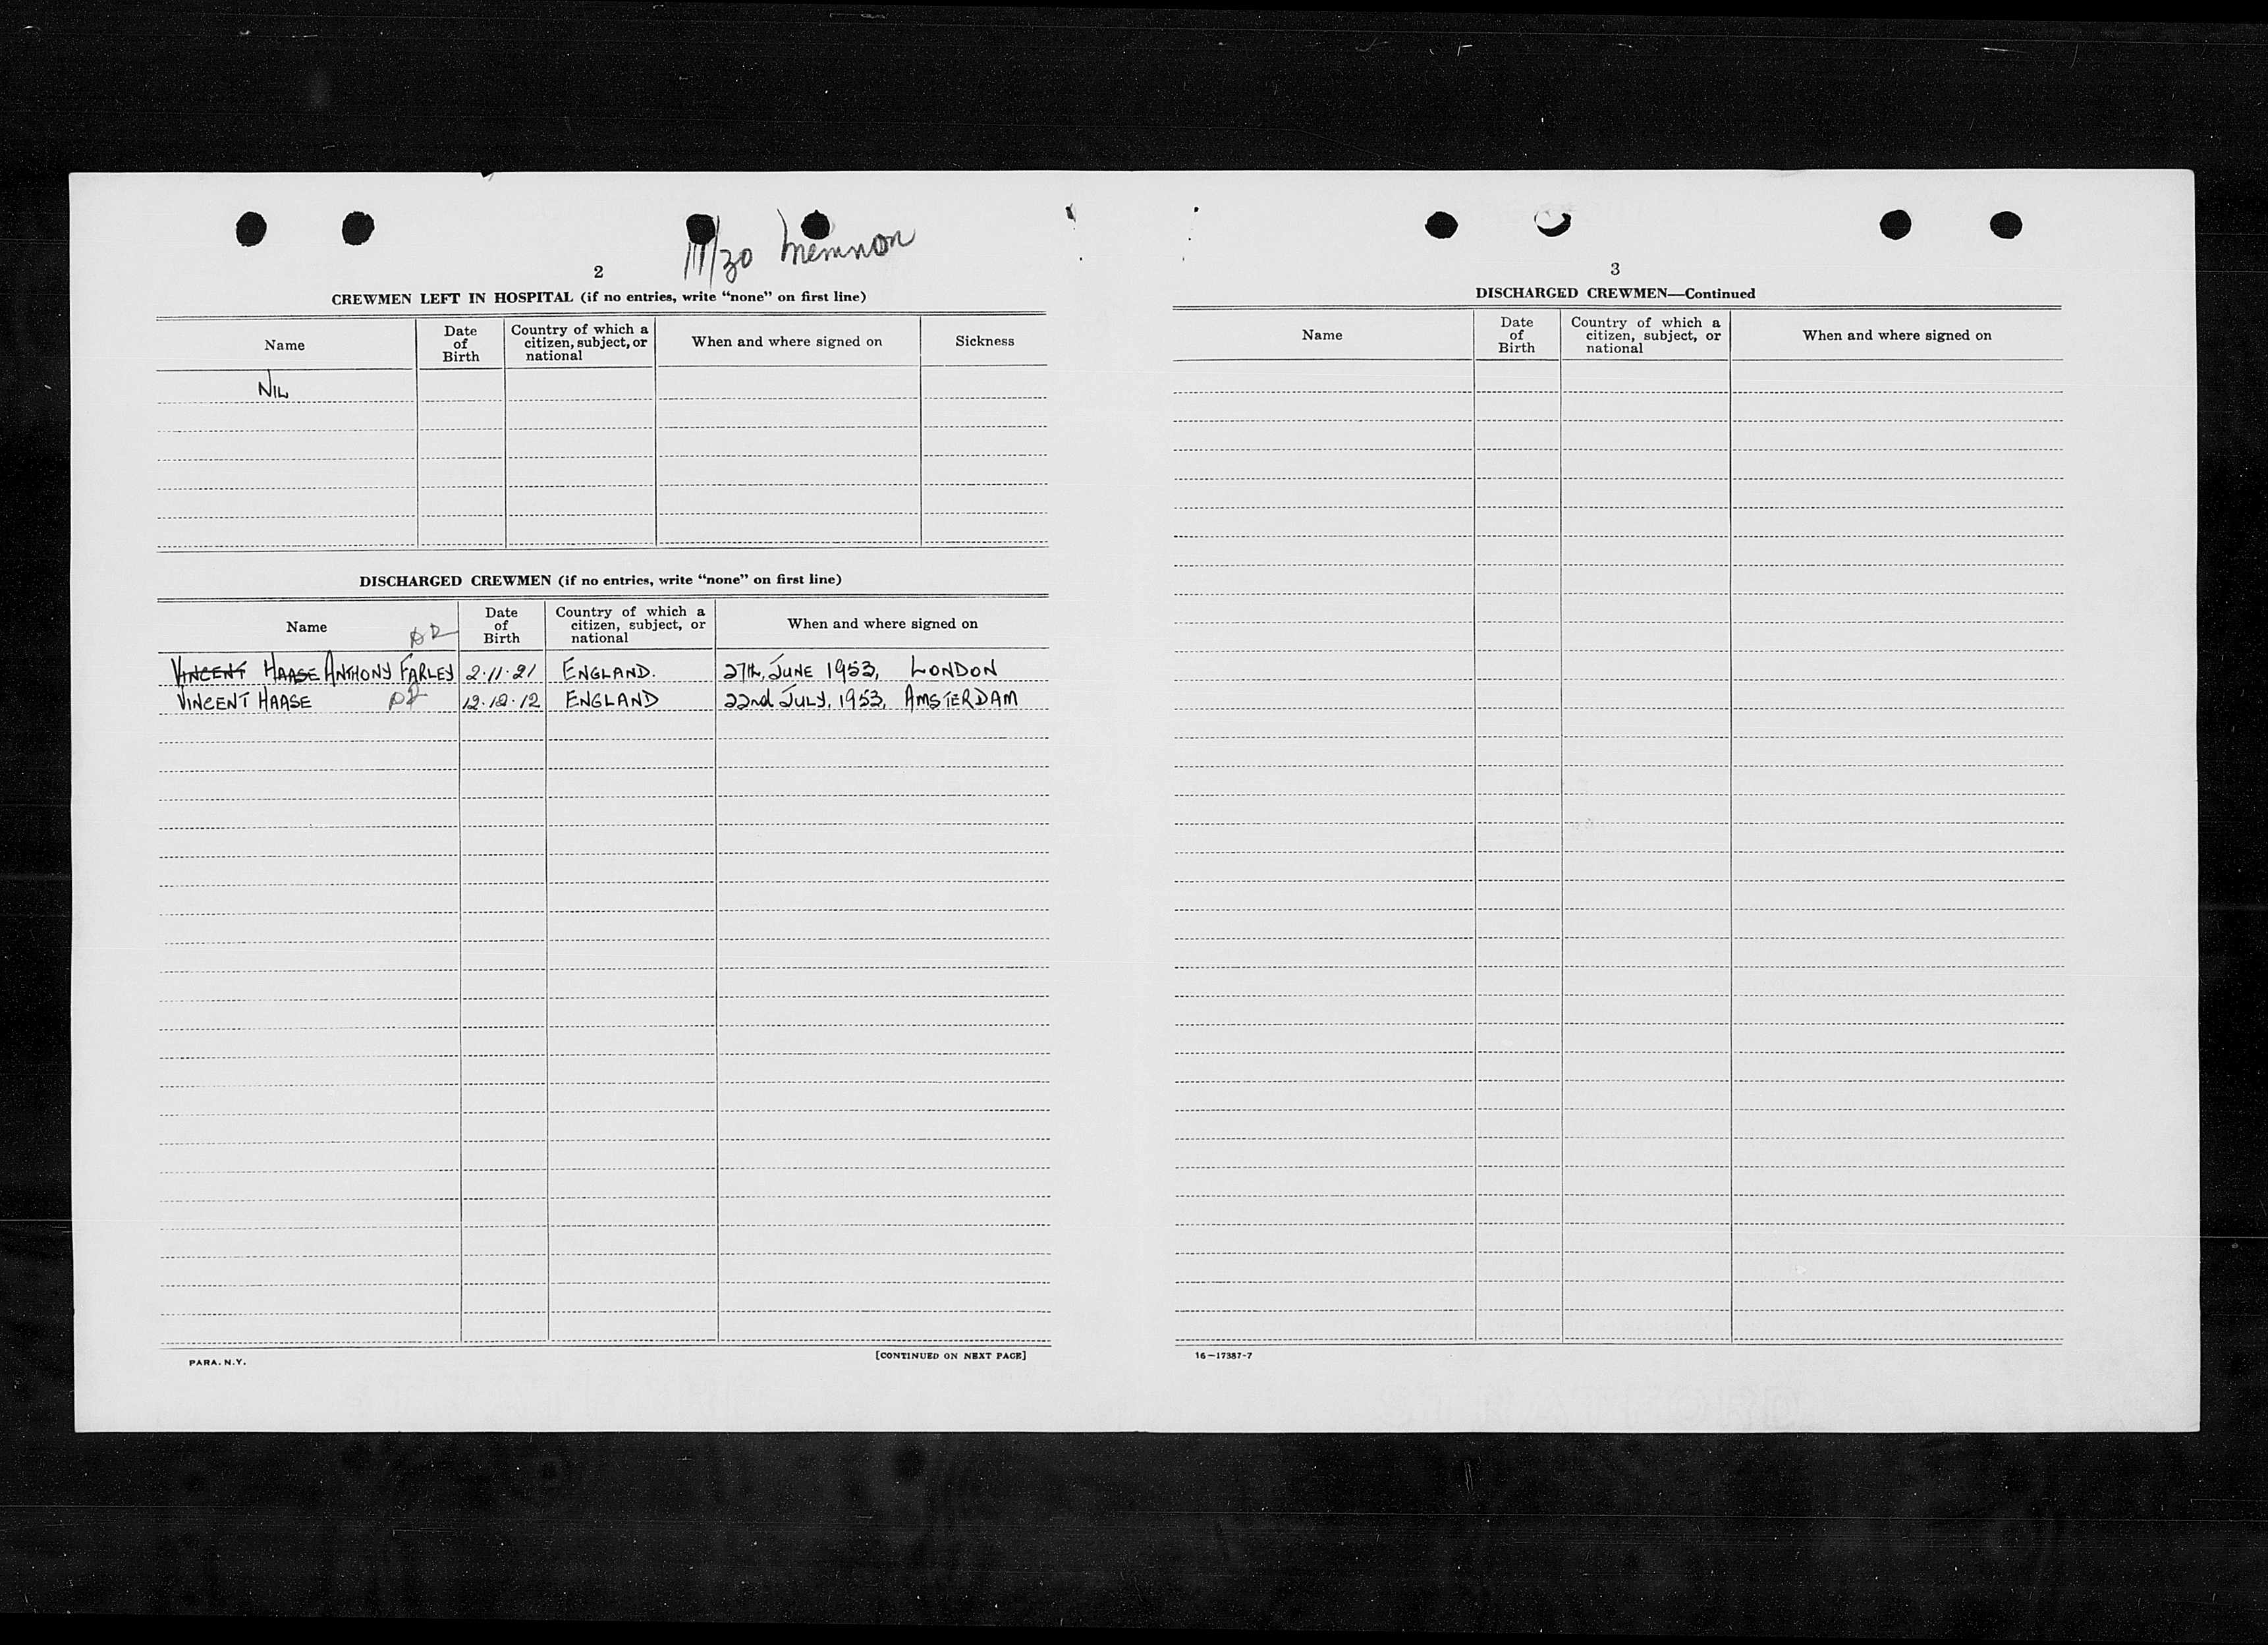 11/30 Memnon
2
CREWMEN LEFT IN HOSPITAL (if no entries, write “none” on first line)
Name Date of Birth Country of which a citizen, subject, or national When and where signed on Sickness
NIL
DISCHARGED CREWMEN (if no entries, write “none” on first line)
Name Date of Birth Country of which a citizen, subject, or national When and where signed on
VINCENT HAASE ANTHONY FARLEY 2·11·21 ENGLAND. 27th, JUNE 1953, LONDON
VINCENT HAASE 12·12·12 ENGLAND 22nd JULY, 1953, AMSTERDAM
PARA. N.Y. [CONTINUED ON NEXT PAGE]
3
DISCHARGED CREWMEN—Continued
Name Date of Birth Country of which a citizen, subject, or national When and where signed on
16—17387-7